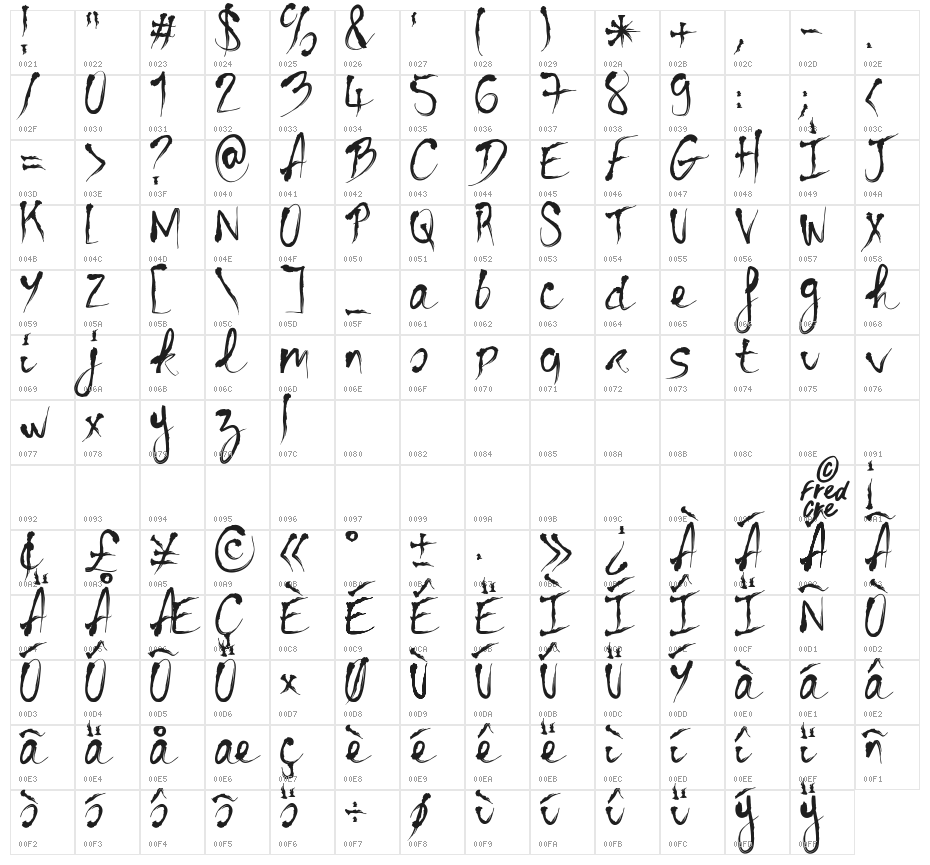 ! " # $ % & ' ( ) * + , - .
0021 0022 0023 0024 0025 0026 0027 0028 0029 002A 002B 002C 002D 002E
/ 0 1 2 3 4 5 6 7 8 9 : ; <
002F 0030 0031 0032 0033 0034 0035 0036 0037 0038 0039 003A 003B 003C
= > ? @ A B C D E F G H I J
003D 003E 003F 0040 0041 0042 0043 0044 0045 0046 0047 0048 0049 004A
K L M N O P Q R S T U V W X
004B 004C 004D 004E 004F 0050 0051 0052 0053 0054 0055 0056 0057 0058
Y Z [ \ ] _ a b c d e f g h
0059 005A 005B 005C 005D 005F 0061 0062 0063 0064 0065 0066 0067 0068
i j k l m n o p q r s t u v
0069 006A 006B 006C 006D 006E 006F 0070 0071 0072 0073 0074 0075 0076
w x y z |
0077 0078 0079 007A 007C 0080 0082 0084 0085 008A 008B 008C 008E 0091
© Fred Cre ¡
0092 0093 0094 0095 0096 0097 0099 009A 009B 009C 009E 00A1
¢ £ ¥ © « ° ± · » ¿ À Á Â Ã
00A2 00A3 00A5 00A9 00AB 00B1 00C2 00C3
Ä Å Æ Ç È É Ê Ë Ì Í Î Ï Ñ Ò
00C8 00C9 00CA 00CF 00D1 00D2
Ó Ô Õ Ö × Ø Ù Ú Û Ü Ý à á â
00D3 00D4 00D5 00D6 00D7 00D8 00D9 00DA 00DB 00DC 00DD 00E0 00E1 00E2
ã ä å æ ç è é ê ë ì í î ï ñ
00E3 00E4 00E5 00E6 00E7 00E8 00E9 00EA 00EB 00EC 00ED 00EE 00EF 00F1
ò ó ô õ ö ÷ ø ù ú û ü ý ÿ
00F2 00F3 00F4 00F5 00F6 00F7 00F8 00F9 00FA 00FB 00FC 00FD 00FF